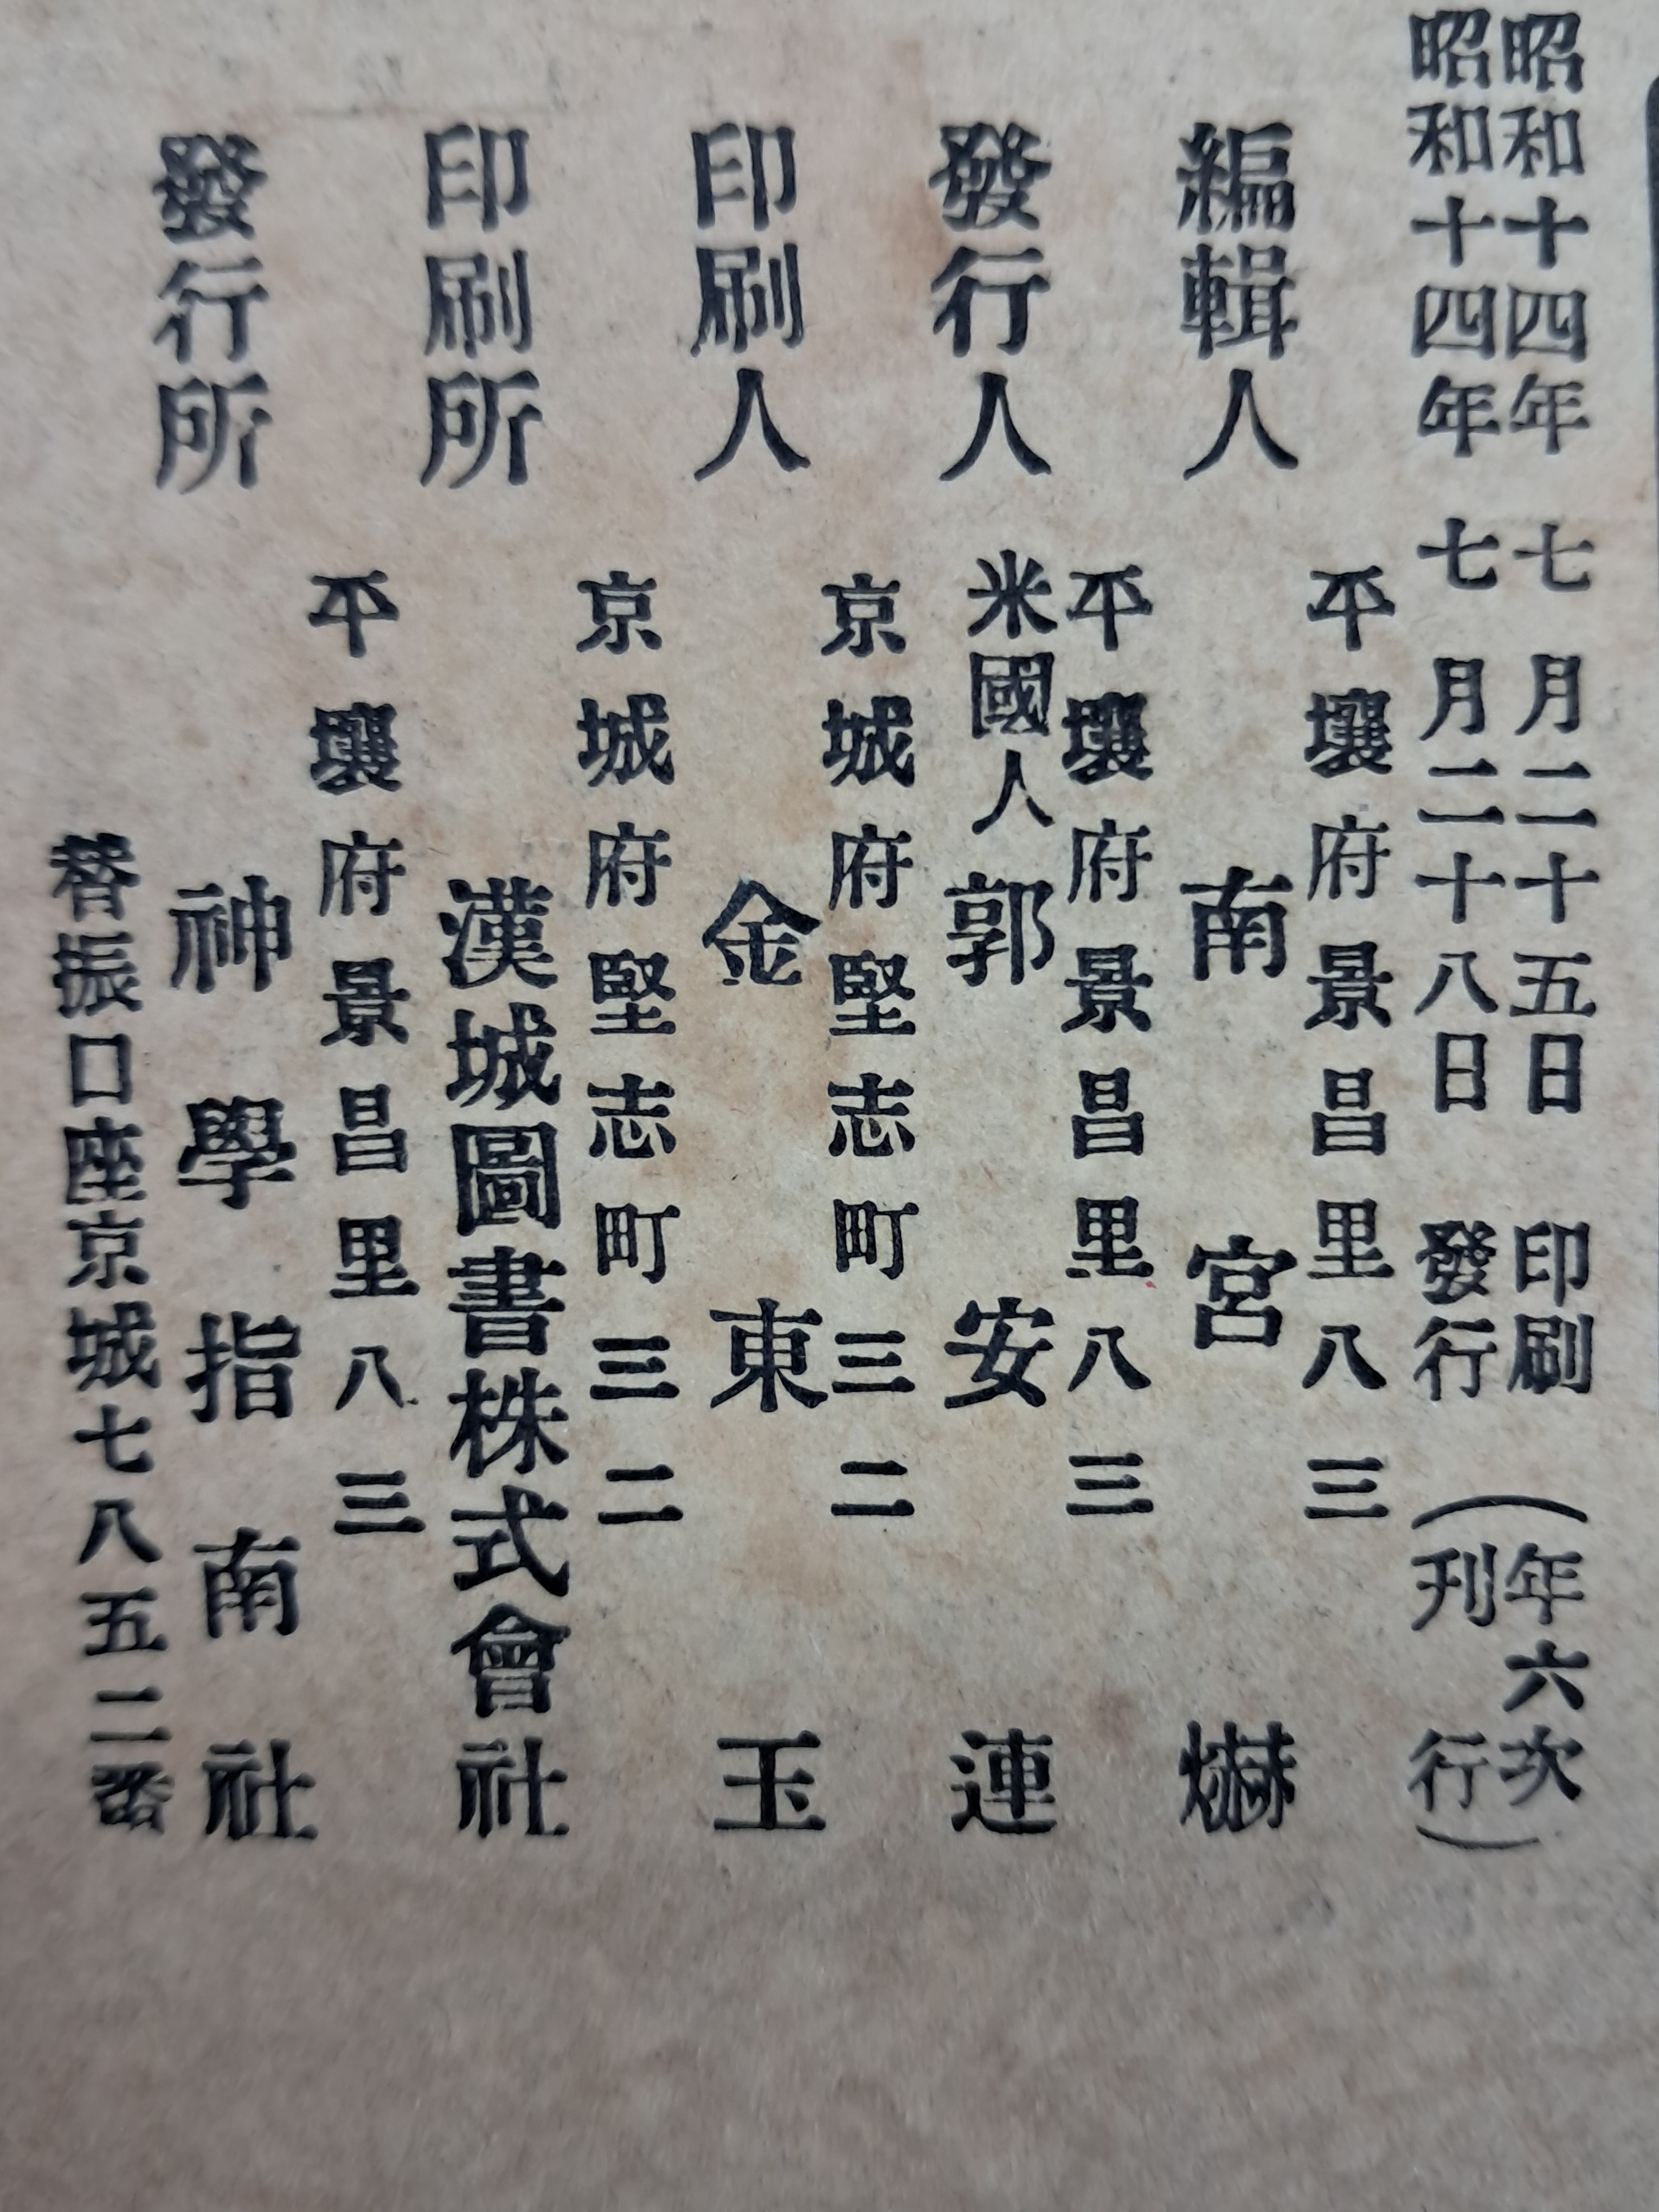 昭和十四年 七月二十五日 印刷 (年六次
昭和十四年 七月二十八日 發行 刊行)
平壤府景昌里八三
編輯人 南宮爀
平壤府景昌里八三
發行人 米國人 郭安連
京城府堅志町三二
印刷人 金東玉
京城府堅志町三二
印刷所 漢城圖書株式會社
平壤府景昌里八三
發行所 神學指南社
替振口座京城七八五二番